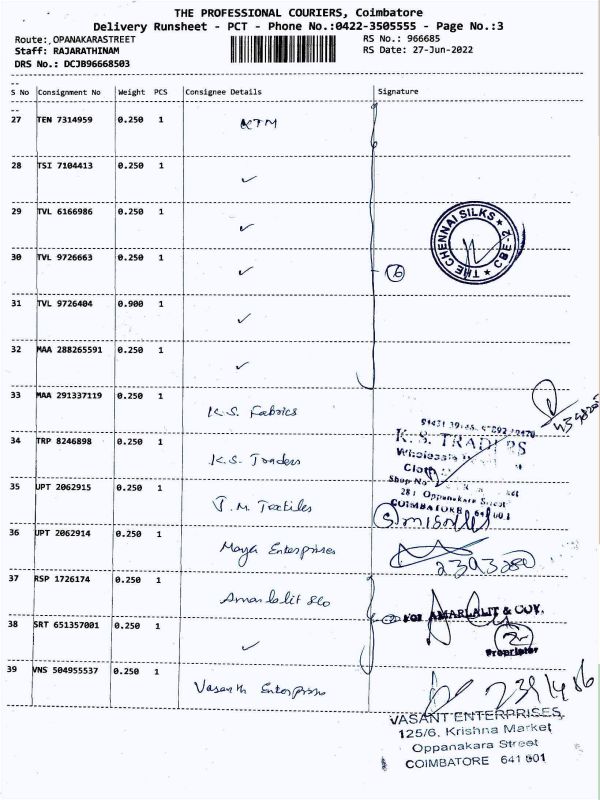 THE PROFESSIONAL COURIERS, Coimbatore
Delivery Runsheet - PCT - Phone No.:0422-3505555 - Page No.:3
Route: OPANAKARASTREET RS No.: 966685
Staff: RAJARATHINAM RS Date: 27-Jun-2022
DRS No.: DCJB96668503
S No Consignment No Weight PCS Consignee Details Signature
27 TEN 7314959 0.250 1 KTM
28 TSI 7104413 0.250 1 ✓
29 TVL 6166986 0.250 1 ✓
THE CHENNAI SILKS ★ CBE-2 ★
30 TVL 9726663 0.250 1 ✓ 6
31 TVL 9726404 0.900 1 ✓
32 MAA 288265591 0.250 1 ✓
33 MAA 291337119 0.250 1 K.S. Fabrics
34 TRP 8246898 0.250 1 K.S. Traders
K. S. TRADERS
Wholesale
Cloth
Shop No
281 Oppanakara Street
COIMBATORE 641 001
35 UPT 2062915 0.250 1 J.M. Textiles
36 UPT 2062914 0.250 1 Maya Enterprises
37 RSP 1726174 0.250 1 Amarlalit &co
FOR AMARLALIT & COY.
2
Proprietor
38 SRT 651357001 0.250 1 ✓
39 VNS 504955537 0.250 1 Vasanth Enterprises
VASANT ENTERPRISES
125/6, Krishna Market
Oppanakara Street
COIMBATORE 641 001